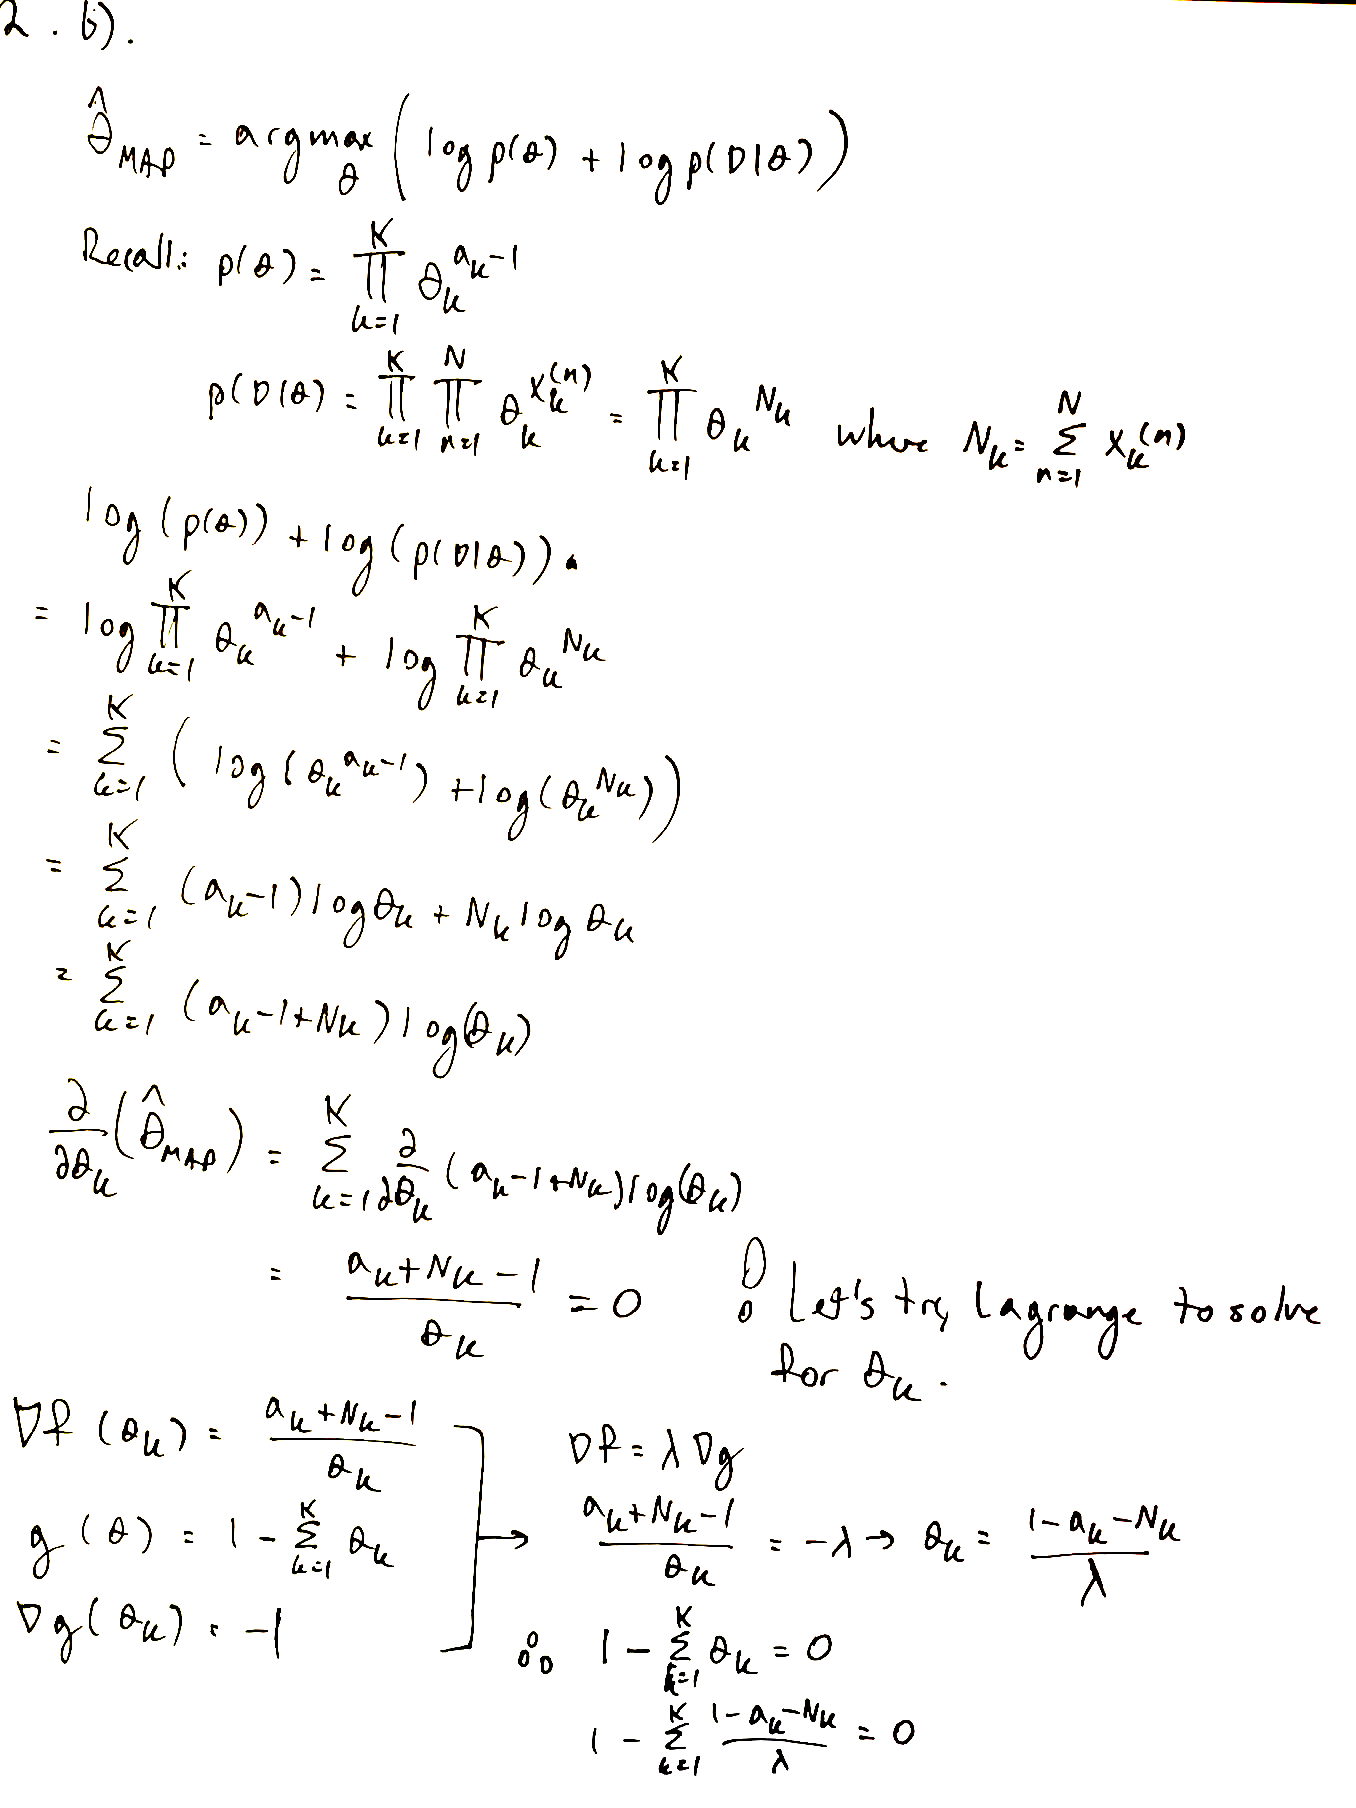 2. b).
θ̂_MAP = argmax_θ ( log p(θ) + log p(D|θ) )
Recall: p(θ) = ∏_{k=1}^{K} θ_k^{a_k-1}
p(D|θ) = ∏_{k=1}^{K} ∏_{n=1}^{N} θ_k^{x_k^{(n)}} = ∏_{k=1}^{K} θ_k^{N_k} where N_k = Σ_{n=1}^{N} x_k^{(n)}
log(p(θ)) + log(p(D|θ)).
= log ∏_{k=1}^{K} θ_k^{a_k-1} + log ∏_{k=1}^{K} θ_k^{N_k}
= Σ_{k=1}^{K} ( log(θ_k^{a_k-1}) + log(θ_k^{N_k}) )
= Σ_{k=1}^{K} (a_k-1) log θ_k + N_k log θ_k
= Σ_{k=1}^{K} (a_k-1+N_k) log(θ_k)
∂/∂θ_k (θ̂_MAP) = Σ_{k=1}^{K} ∂/∂θ_k (a_k-1+N_k) log(θ_k)
= (a_k+N_k-1)/θ_k = 0 ! Let's try Lagrange to solve
for θ_k.
∇f(θ_k) = (a_k+N_k-1)/θ_k
g(θ) = 1 - Σ_{k=1}^{K} θ_k
∇g(θ_k) = -1
→ ∇f = λ∇g
(a_k+N_k-1)/θ_k = -λ → θ_k = (1-a_k-N_k)/λ
∴ 1 - Σ_{k=1}^{K} θ_k = 0
1 - Σ_{k=1}^{K} (1-a_k-N_k)/λ = 0